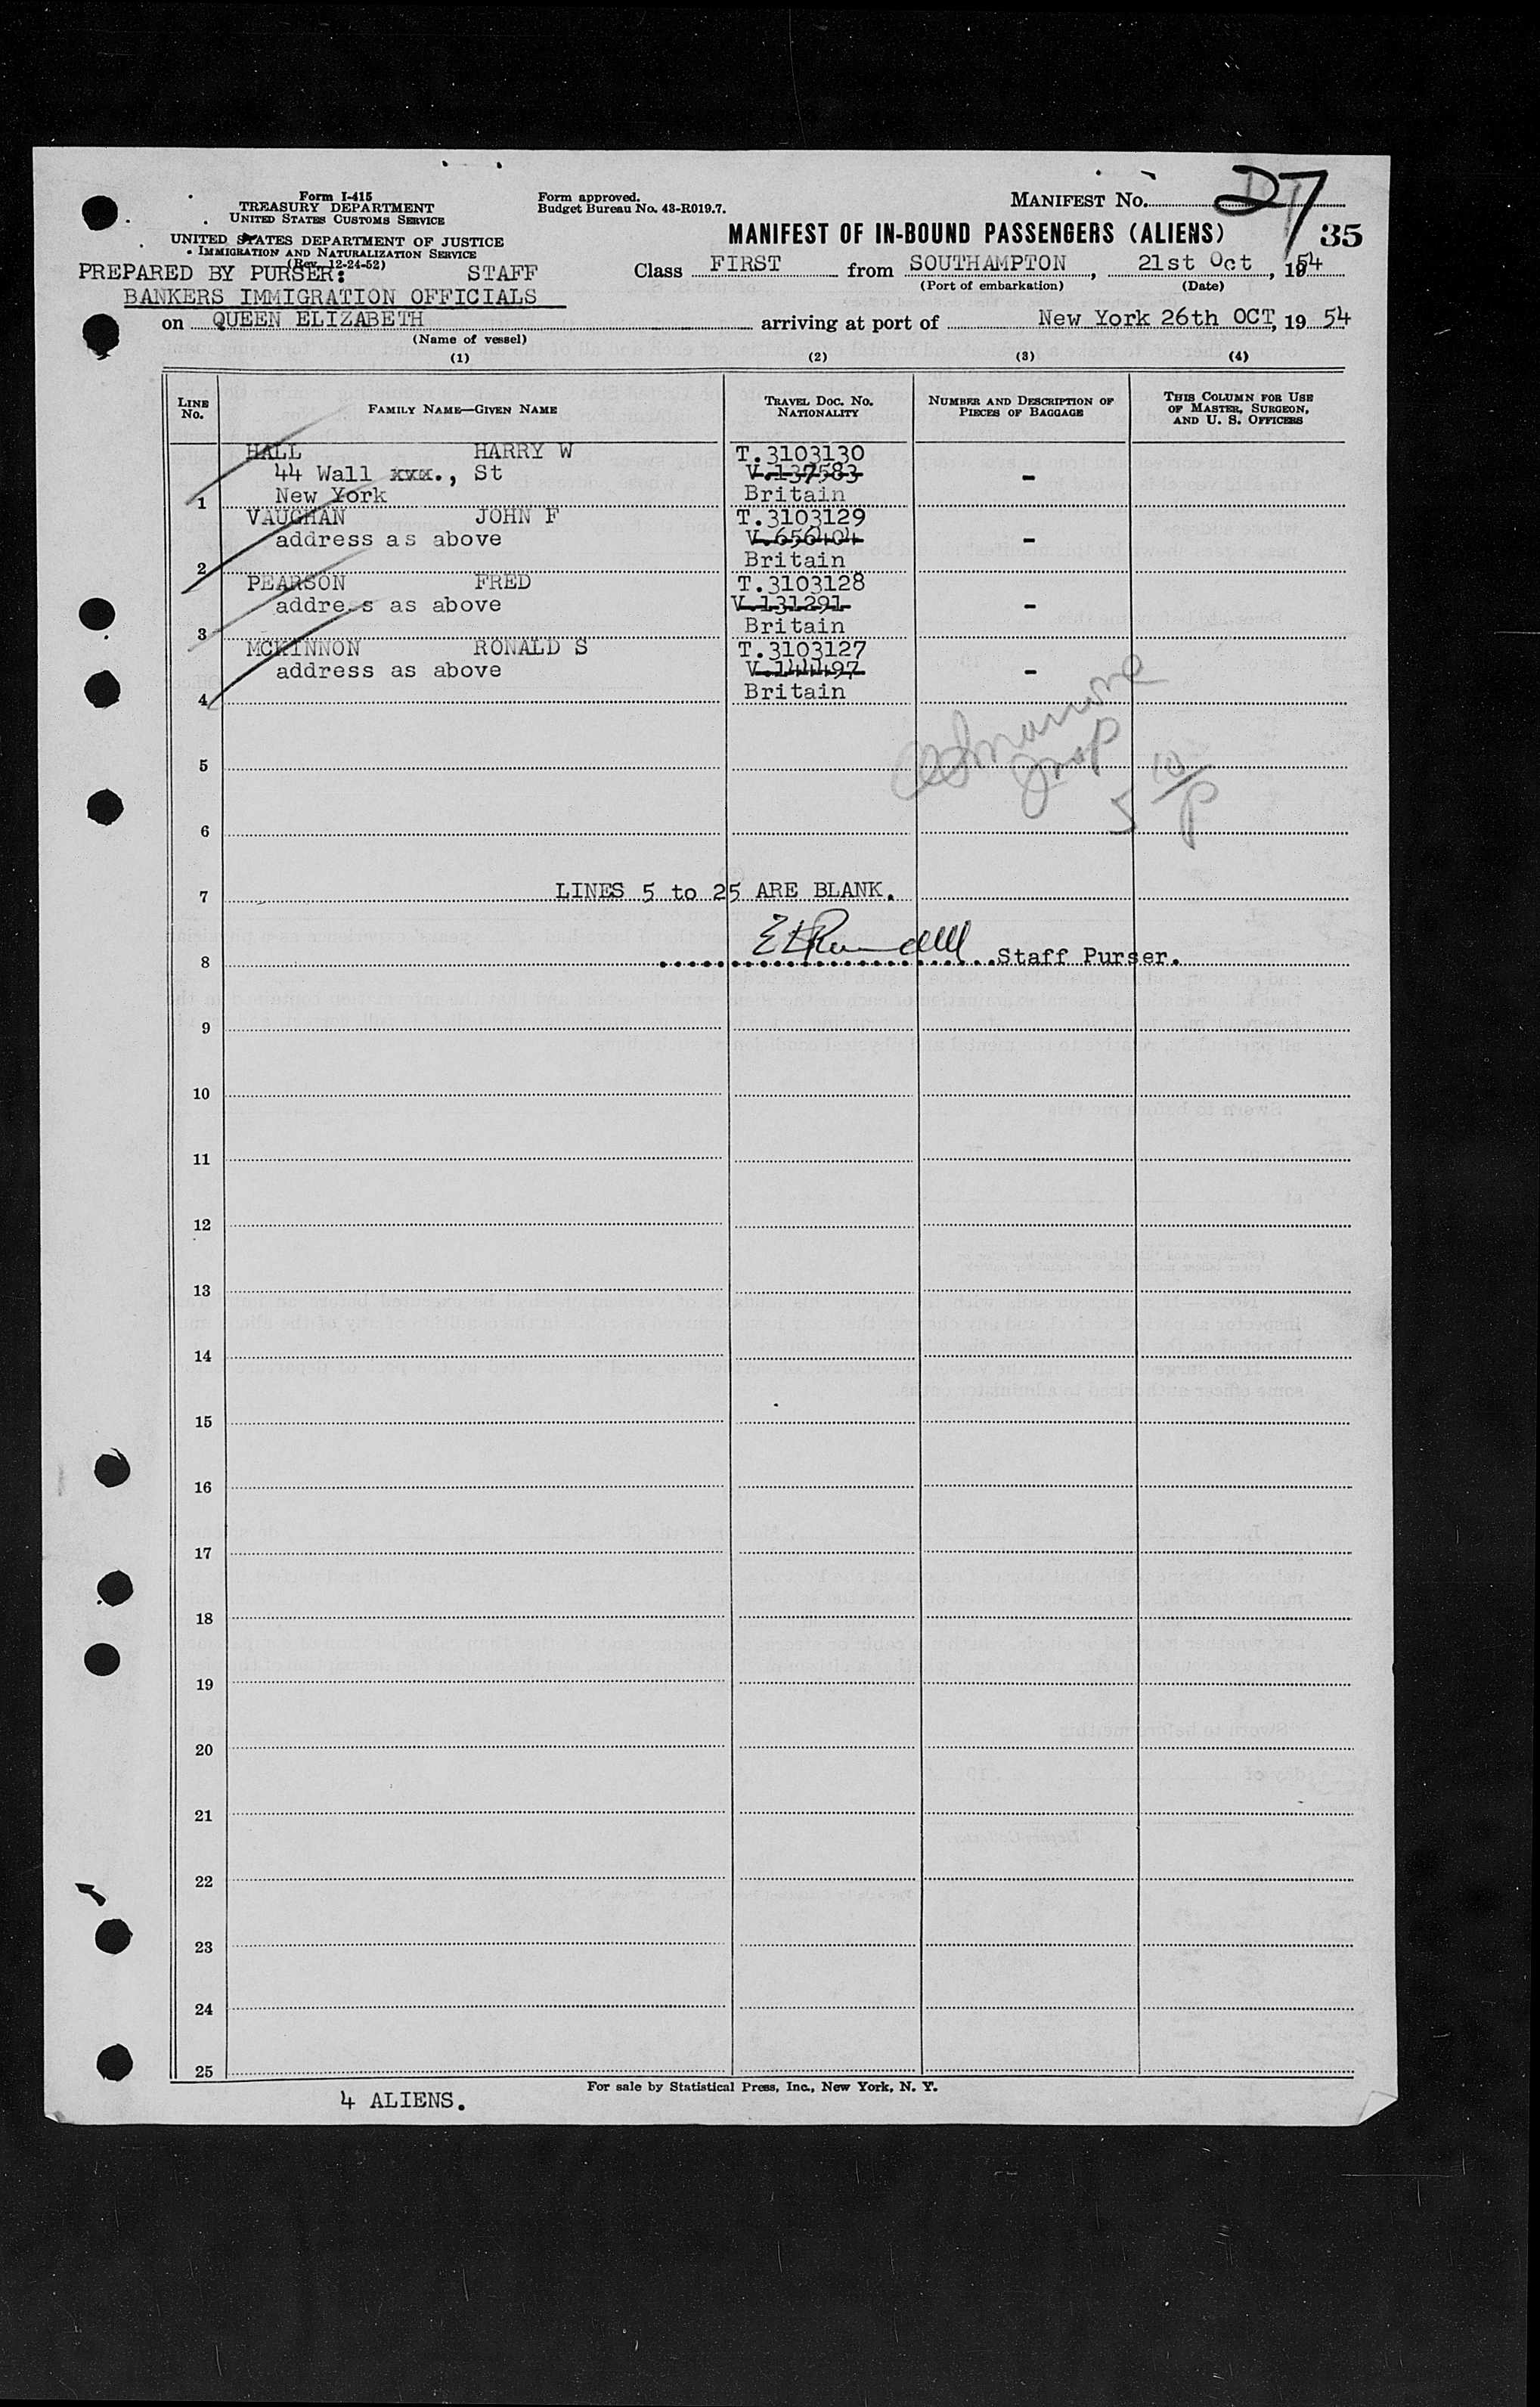 Form I-415
TREASURY DEPARTMENT
UNITED STATES CUSTOMS SERVICE
Form approved.
Budget Bureau No. 43-R019.7.
MANIFEST No. 27
UNITED STATES DEPARTMENT OF JUSTICE
IMMIGRATION AND NATURALIZATION SERVICE
(Rev. 12-24-52)
MANIFEST OF IN-BOUND PASSENGERS (ALIENS) 35
PREPARED BY PURSER: STAFF
Class FIRST from SOUTHAMPTON, 21st Oct, 1954
(Port of embarkation) (Date)
BANKERS IMMIGRATION OFFICIALS
on QUEEN ELIZABETH arriving at port of New York 26th OCT, 19 54
(Name of vessel)
(1) (2) (3) (4)
LINE No. FAMILY NAME—GIVEN NAME TRAVEL DOC. NO. NATIONALITY NUMBER AND DESCRIPTION OF PIECES OF BAGGAGE THIS COLUMN FOR USE OF MASTER, SURGEON, AND U. S. OFFICERS
HALL HARRY W T.3103130
44 Wall xxx., St V.137583 -
1 New York Britain
VAUGHAN JOHN F T.3103129
address as above V.656404 -
2 Britain
PEARSON FRED T.3103128
address as above V.131291 -
3 Britain
MCKINNON RONALD S T.3103127
address as above V.144497 -
4 Britain
5
6
7 LINES 5 to 25 ARE BLANK.
8 Staff Purser.
9
10
11
12
13
14
15
16
17
18
19
20
21
22
23
24
25
For sale by Statistical Press, Inc., New York, N. Y.
4 ALIENS.